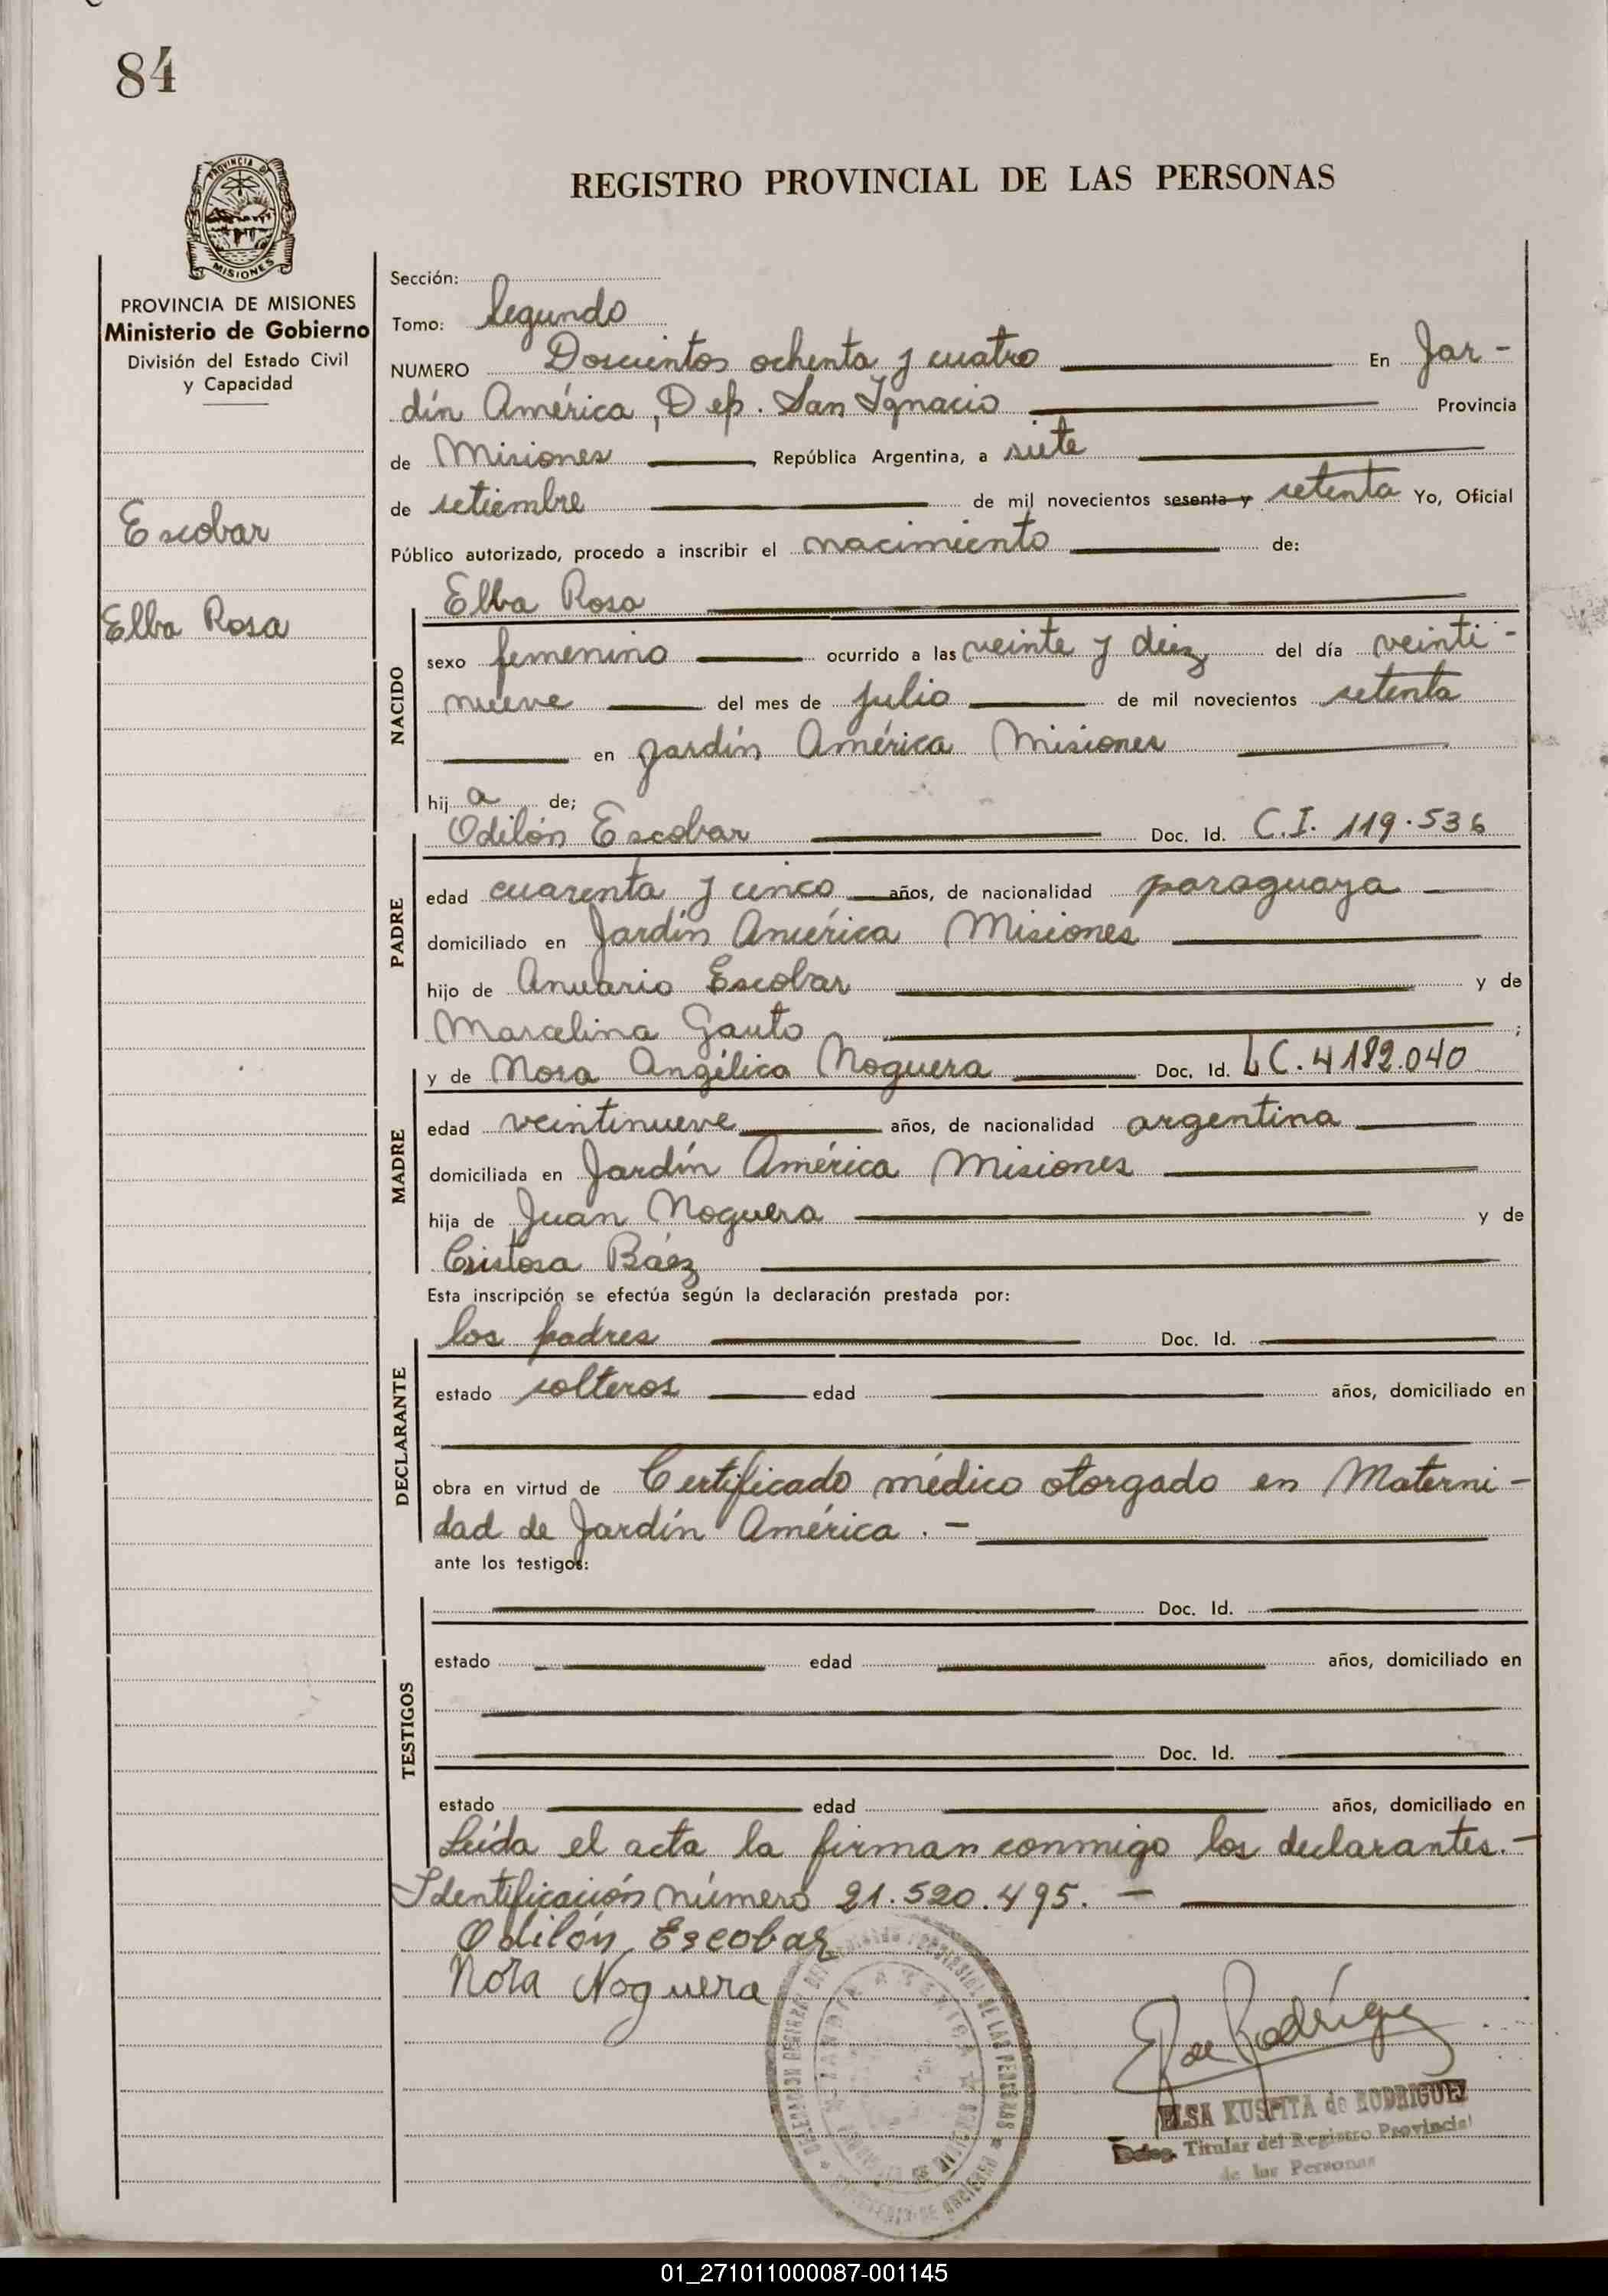 84
PROVINCIA DE
MISIONES
PROVINCIA DE MISIONES
Ministerio de Gobierno
División del Estado Civil
y Capacidad
Escobar
Elba Rosa
REGISTRO PROVINCIAL DE LAS PERSONAS
Sección:
Tomo: Segundo
NUMERO Doscientos ochenta y cuatro En Jar-
dín América, Dep. San Ignacio Provincia
de Misiones, República Argentina, a siete
de setiembre de mil novecientos sesenta y setenta Yo, Oficial
Público autorizado, procedo a inscribir el nacimiento de:
Elba Rosa
NACIDO
sexo femenino ocurrido a las veinte y diez del día veinti-
nueve del mes de julio de mil novecientos setenta
en Jardín América Misiones
hij a de;
Odilón Escobar Doc. Id. C.I. 119.536
PADRE
edad cuarenta y cinco años, de nacionalidad paraguaya
domiciliado en Jardín América Misiones
hijo de Anuario Escobar y de
Marcelina Gauto ;
y de Nora Angélica Noguera Doc. Id. L C. 4182.040
MADRE
edad veintinueve años, de nacionalidad argentina
domiciliada en Jardín América Misiones
hija de Juan Noguera y de
Cristosa Báez
Esta inscripción se efectúa según la declaración prestada por:
los padres Doc. Id.
DECLARANTE
estado solteros edad años, domiciliado en
obra en virtud de Certificado médico otorgado en Materni-
dad de Jardín América . -
ante los testigos:
Doc. Id.
TESTIGOS
estado edad años, domiciliado en
Doc. Id.
estado edad años, domiciliado en
Leída el acta la firman conmigo los declarantes.-
Identificación número 21.520.495. -
Odilón Escobar
Nora Noguera
Elsa de Rodríguez
ELSA KUSPITA de RODRIGUEZ
Deleg. Titular del Registro Provincial
de las Personas
01_271011000087-001145